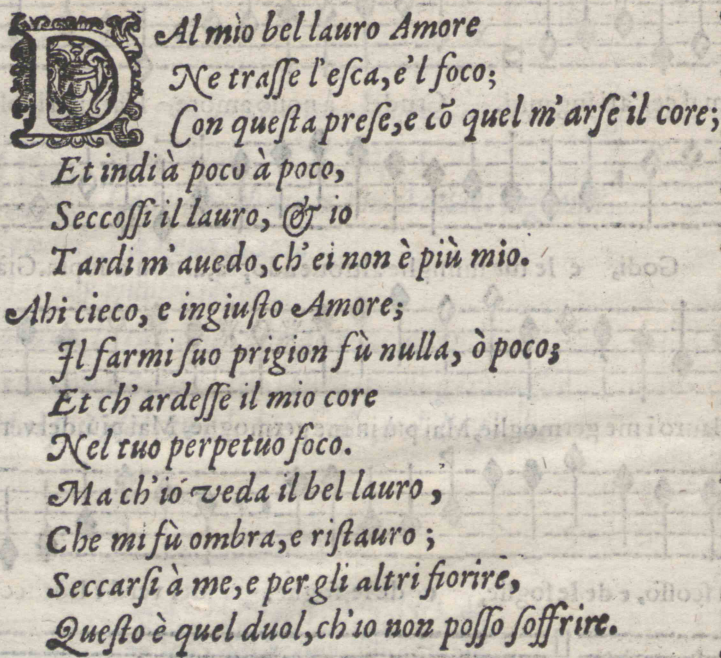 DAl mio bel lauro Amore
Ne traſſe l'eſca, e'l foco;
Con queſta preſe, e cõ quel m'arſe il core;
Et indi à poco à poco,
Seccoſſi il lauro, & io
Tardi m'auedo, ch'ei non è più mio.
Ahi cieco, e ingiuſto Amore;
Il farmi ſuo prigion fù nulla, ò poco;
Et ch'ardeſſe il mio core
Nel tuo perpetuo foco.
Ma ch'iò veda il bel lauro,
Che mi fù ombra, e riſtauro;
Seccarſi à me, e per gli altri fiorire,
Queſto è quel duol, ch'io non poſſo ſoffrire.